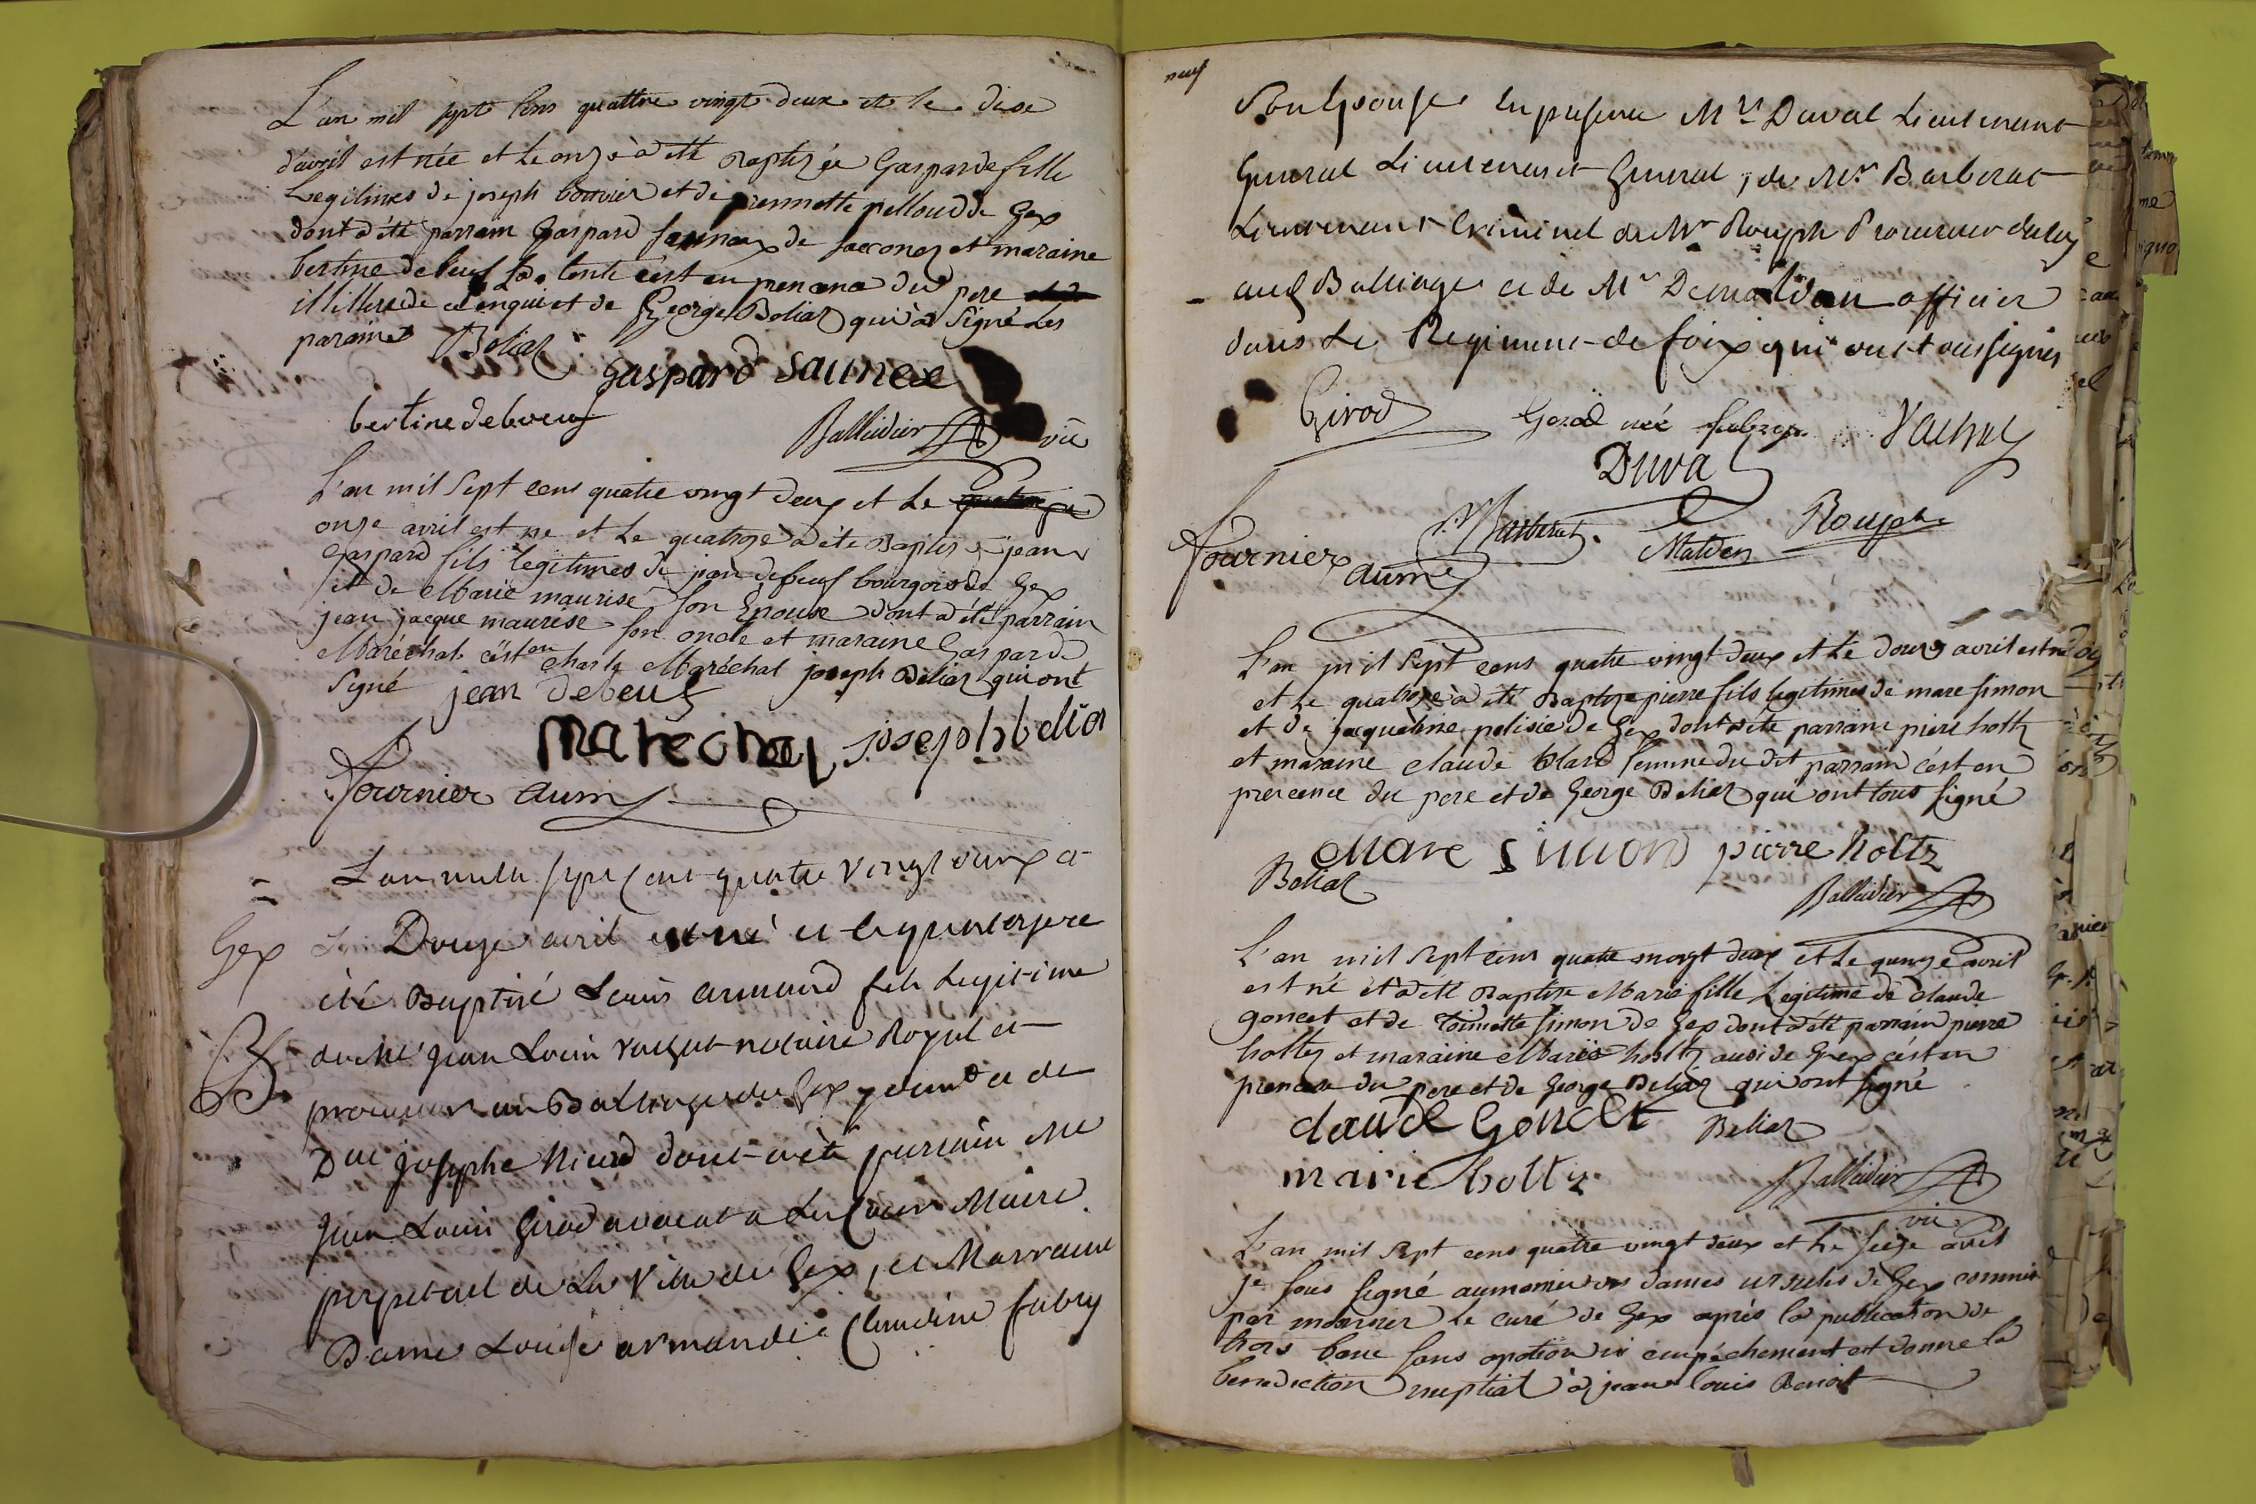 L'an mil sept cens quattre vingt deux et le dixe
d'avril est née et le onze à été Baptizée Gasparde fille
Legitimes de joseph bouvier et de pierrnette pelloud de Gex
dont à été parrain Gaspard saunex de sacconex et maraine
bertine debeuf sa tente c'est en presence du pere
illiterede et enquiet de George Beliaz qui à Signé Les
parains Beliaz
Gaspard Saunex
bertine deboeuf
Balleidier
vu
L'an mil Sept cens quatre vingt deux et Le
onze avril est ne et Le quatorze à été Baptisé jean
Gaspard fils legitimes de jean debeuf bourgois de Gex
et de Marie maurise son Epouse dont à été parrain
jean jacque maurise son oncle et maraine Gasparde
Maréchal c'ést en charle Maréchal joseph Béliaz qui ont
Signé jean debeuf
marechal josephbeliaz
Fournier aum
L'an mille sept cent quatre vingt deux et
Gex
Le Douze avril est né et le quatorze a
été Baptisé Louis armand fils Legitime
de Me jean Louis vachat notaire Royal et
procureur au Balliage de Gex, et de
Dlle josephe Nicod dont a été parrain Me
jean Louis Girod avocat a la Cour Maire
perpetuel de La Ville de Gex, et Marraine
Dame Louise armande Claudine fabry
neuf
Son Epouse En presence Mrs Duval Lieutenant
General Lieutenant General, de Mr Barberat
Lieutenant Criminel de Mr Rouph Procureur du Roy
aud Balliage et de Mr Demaldan officier
dans Le Regiment de foix qui ont tous signés
Girod Girod née fabry Vachat
Duval
Fournier aum Barberat Malden Rouph
L'an mil Sept cens quatre vingt deux et Le douze avril est né
et Le quatorze à été Baptize pierre fils legitimes de marc simon
et de jacqueline pelisie de Gex dont à été parrain piere holtz
et maraine claude blard femme du dit parrain c'ést en
prercence du pere et de George Beliaz qui ont tous signé
Marc Simond pierre holtz
Beliaz
Balleidier
L'an mil Sept cens quatre vingt deux et Le quinze avril
est né et à été Baptize Marie fille Legitime de claude
goncet et de toinette simon de Gex dont à été parrain pierre
holtz et maraine Marie holtz ausi de Gex c'ést en
presence du pere et de George Beliaz qui ont signé
claude Goncet Beliaz
marie holtz
Balleidier
vu
L'an mil Sept cens quatre vingt deux et Le seize avril
je sous signé aumonier des dames ursules de Gex commis
par monsier Le curé de Gex après la publication de
trois banc sans opotion ni empéchement est donne la
benediction nuptial à jean louis Benoit